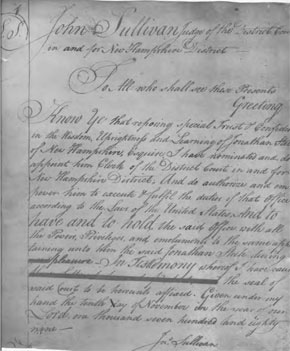 John Sullivan Judge of the District Court
in and for New Hampshire District
To All who shall see these Presents
Greeting
Know Ye that reposing special Trust & Confidence
in the Wisdom, Uprightness and Learning of Jonathan
of New Hampshire, Esquire, I have nominated and do
appoint him Clerk of the District Court in and for
New Hampshire District, And do authorize and em
power him to execute & fulfil the duties of that Office
according to the Laws of the United States And to
have and to hold the said Office with all
the Powers, Privileges, and emoluments to the same apper
taining unto him the said Jonathan Steele during
pleasure In Testimony whereof I have caused
the seal of
said Court to be hereunto affixed. Given under my
hand the tenth day of November in the year of our
Lord one thousand seven hundred and eighty
nine
Jno Sullivan